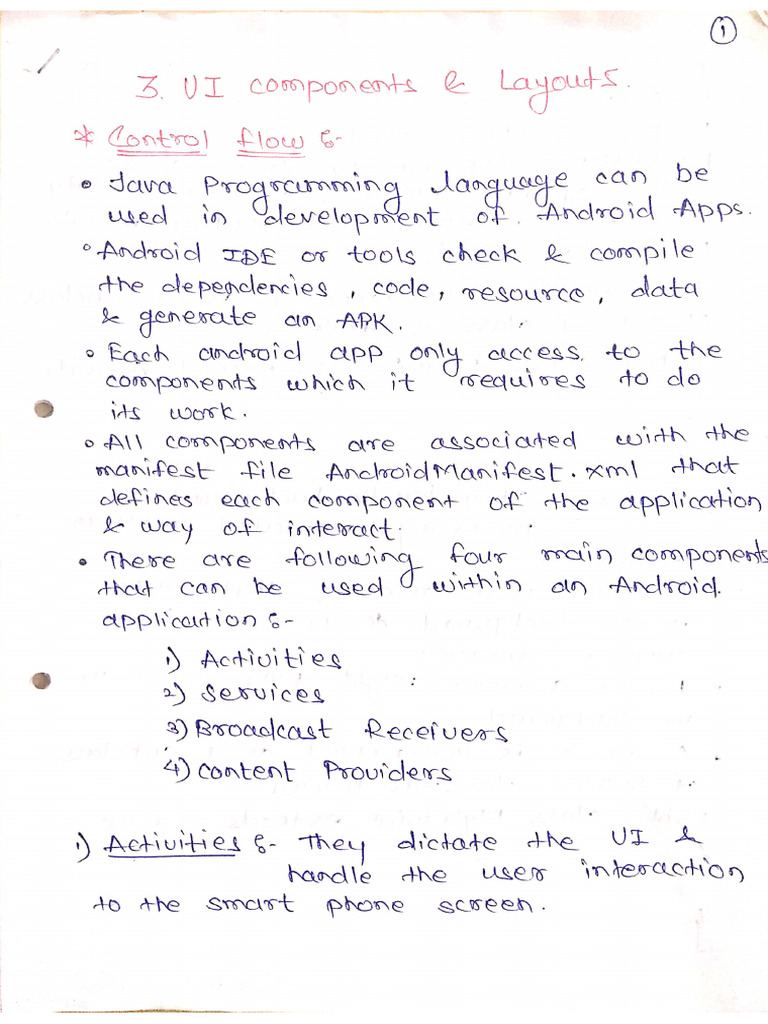 1
3. UI components & Layouts.
* Control flow :-
• Java Programming language can be
used in development of Android Apps.
• Android IDE or tools check & compile
the dependencies, code, resource, data
& generate an APK.
• Each android app only access to the
components which it requires to do
its work.
• All components are associated with the
manifest file AndroidManifest.xml that
defines each component of the application
& way of interact.
• There are following four main components
that can be used within an Android
application :-
1) Activities
2) Services
3) Broadcast Receivers
4) Content Providers
1) Activities :- They dictate the UI &
handle the user interaction
to the smart phone screen.